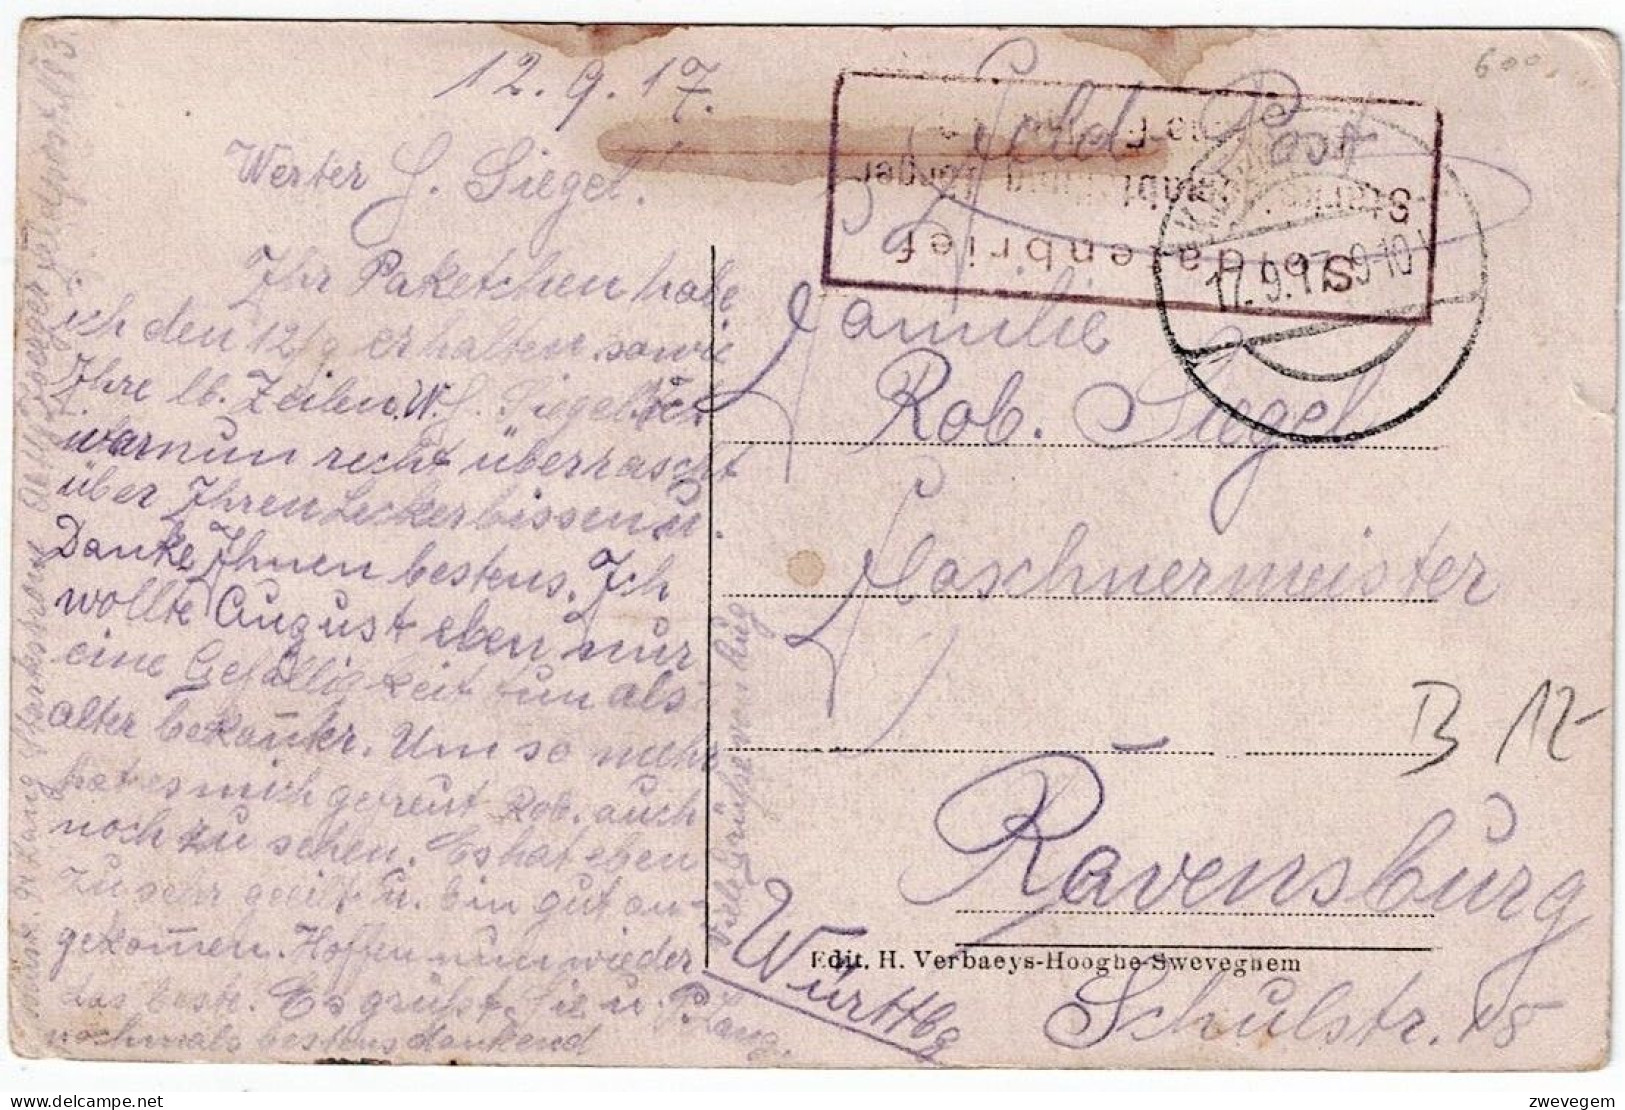 12. 9. 17.
Werter H. Siegel.
Ihr Paketchen habe
ich den 12/9 erhalten sowie
Ihre lb. Zeilen. W. H. Siegel ich
war nun recht überrascht
über Ihren Leckerbissen u.
Danke Ihnen bestens. Ich
wollte August eben nur
eine Gefälligkeit tun als
alter bekannter. Um so mehr
hat es mich gefreut Rob. auch
noch zu sehen. Es hat eben
zu sehr geeilt u. bin gut an-
gekom̄en. Hoffen nun wieder
das beste. Es grüßt Sie u. P. Lang.
nochmals bestens dankend
Viele Grüße von Hug
Feldpost 183.
Feld Post
Soldatenbrief
17. 9. 17. 9-10 V
Familie
Rob. Siegel
Flaschnermeister
Ravensburg
Württbg
Schulstr. 18
Edit. H. Verbaeys-Hooghe-Sweveghem
600
B 12-
zwevegem